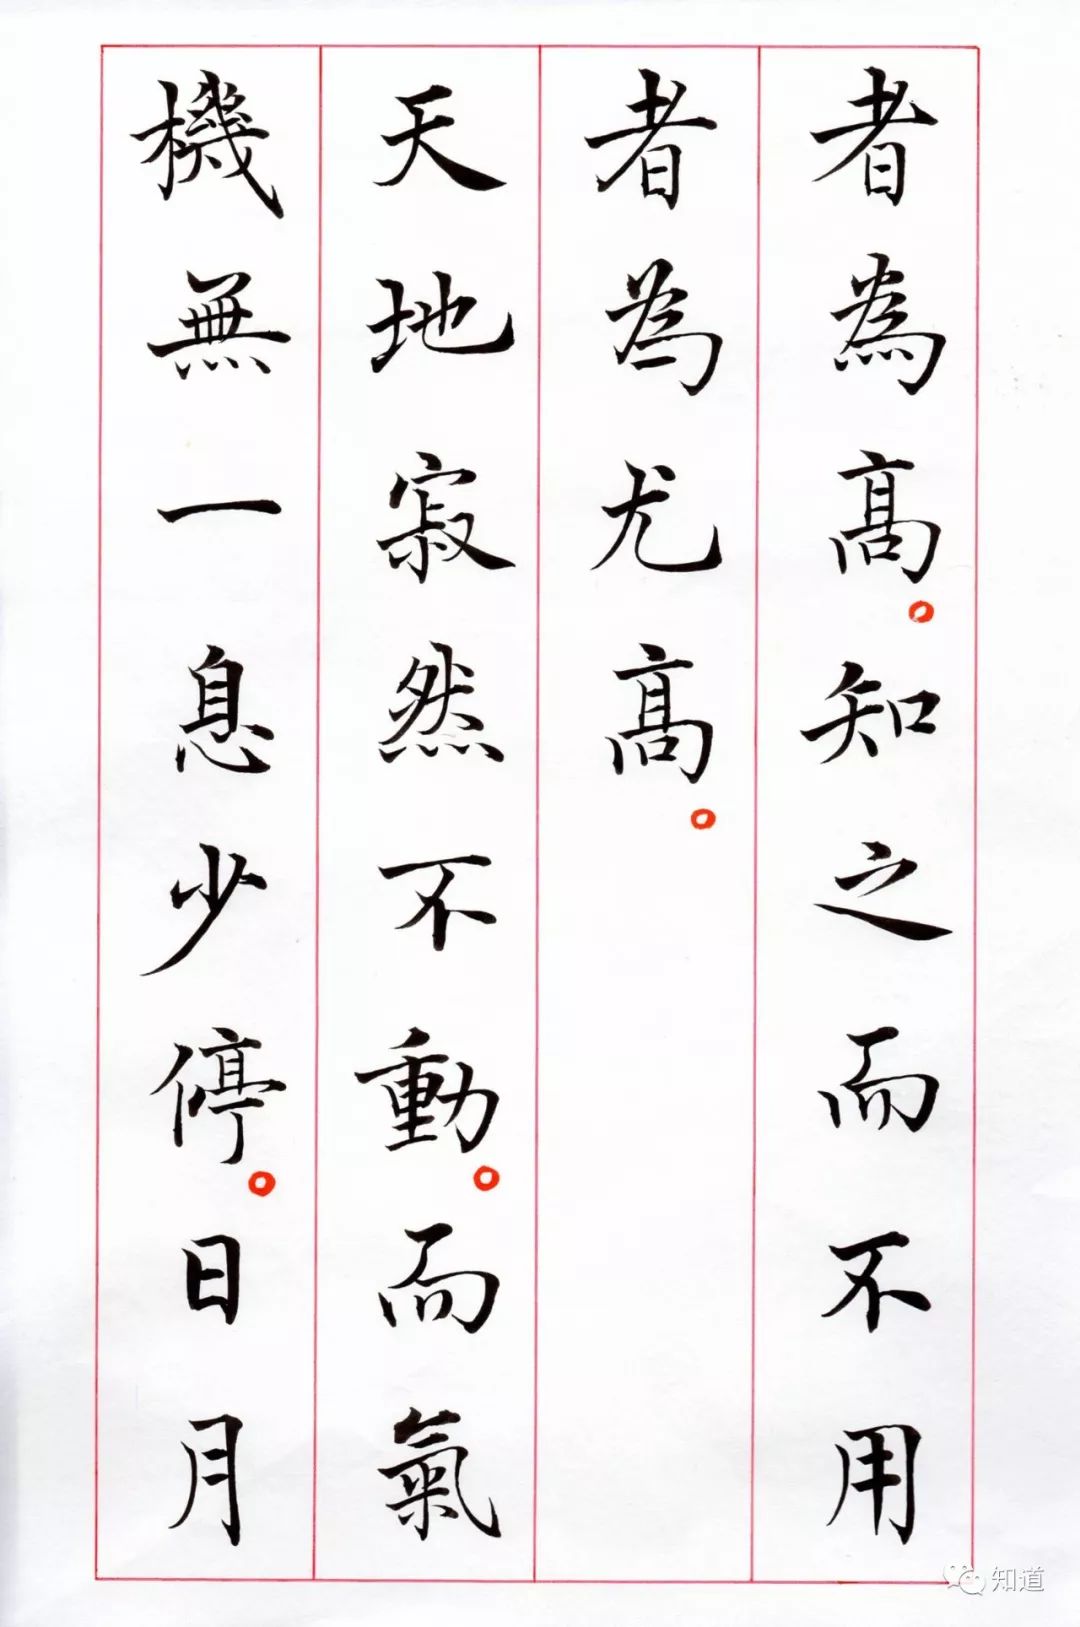 者為髙。知之而不用
者為尤髙。
天地寂然不動。而氣
機無一息少停。日月
知道